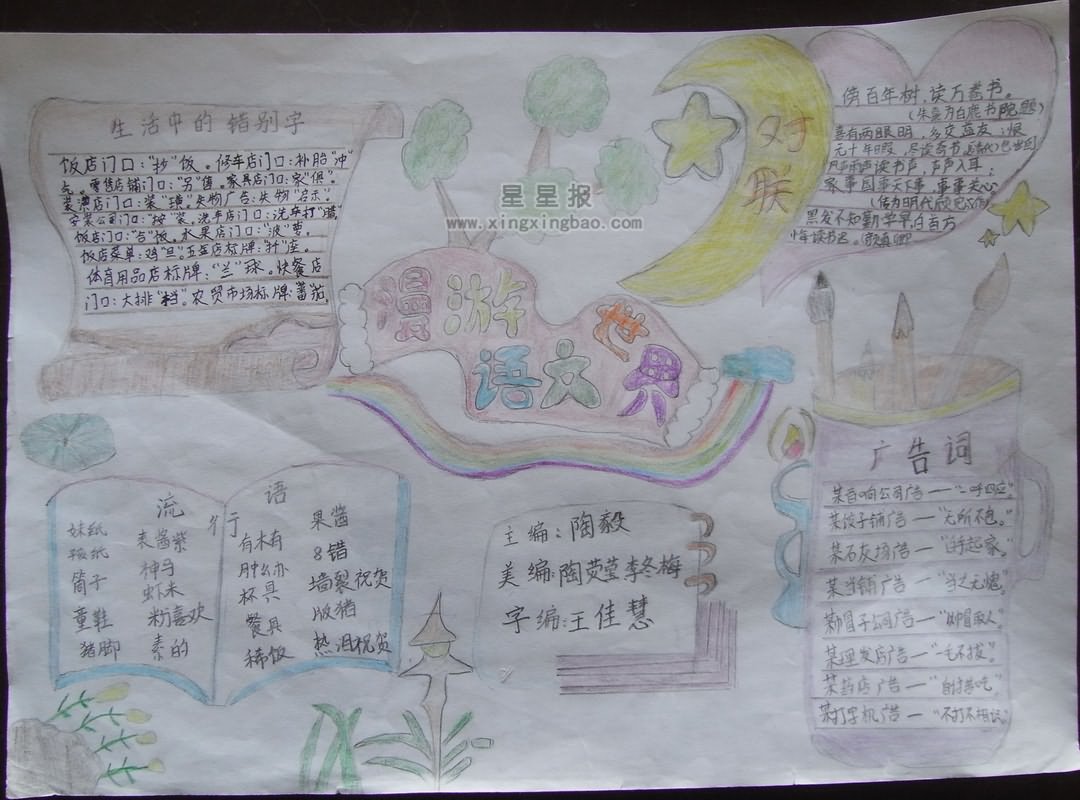 生活中的错别字
饭店门口:"抄"饭。修车店门口:补胎"冲
气。零售店铺门口:"另"售。家具店门口:家"俱"。
装潢店门口:装"璜"失物广告:失物"启示"。
安装公司门口:"按"装。洗车店门口:洗车打"腊"
饭店门口:"合"饭。水果店门口:"波"萝。
饭店菜单:鸡"旦"。五金店标牌:"扦"座。
体育用品店标牌:"兰"球。快餐店
门口:大排"档"。农贸市场标牌:蕃茄。
星星报
www.xingxingbao.com
漫游
语文世界
对联
傍百年树,读万卷书。
(朱熹为白鹿书院题)
喜有两眼明,多交益友;恨
无十年暇,尽读奇书(清代)包世臣
风声雨声读书声,声声入耳;
家事国事天下事,事事关心
(传为明代顾宪成作)
黑发不知勤学早,白首方
悔读书迟。颜真卿
广告词
某音响公司广告——"一呼四应。"
某饺子铺广告——"无所不包。"
某石灰场广告——"白手起家。"
某当铺广告——"当之无愧。"
某帽子公司广告——"以帽取人。"
某理发店广告——"一毛不拔。"
某药店广告——"自讨苦吃。"
某打字机广告——"不打不相识。"
流行语
妹纸
板纸
筒子
童鞋
猪脚
表酱紫
神马
虾米
粉喜欢
素的
有木有
肿么办
杯具
餐具
稀饭
果酱
8错
墙裂祝贺
版猪
热泪祝贺
主编:陶毅
美编:陶荧莹李冬梅
字编:王佳慧